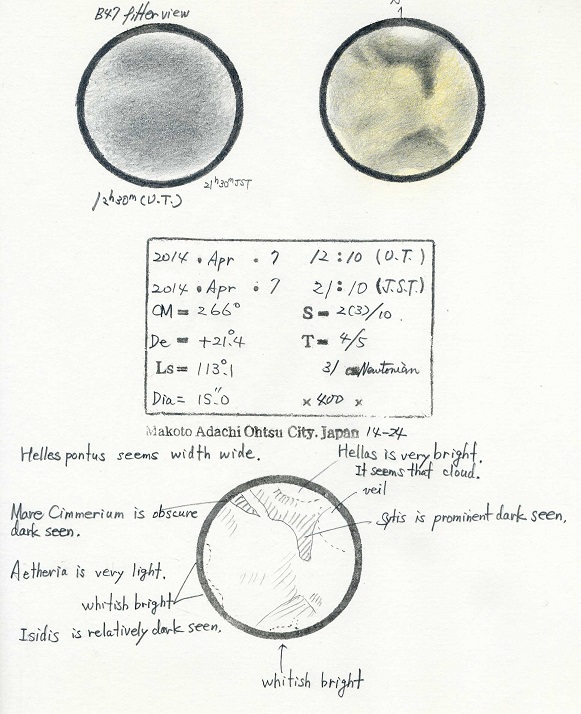 B47 filter view
N
21h30m JST
12h30m (U.T.)
2014 . Apr . 7 12:10 (U.T.)
2014 . Apr . 7 21:10 (J.S.T.)
CM = 266° S = 2(3)/10
De = +21.°4 T = 4/5
Ls = 113.°1 31 cm Newtonian
Dia = 15."0 × 400 ×
Makoto Adachi Ohtsu City. Japan 14-24
Helles pontus seems width wide.
Hellas is very bright.
It seems that cloud.
veil
Mare Cimmerium is obscure
dark seen.
Sytis is prominent dark seen.
Aetheria is very light.
whitish bright
Isidis is relatively dark seen.
whitish bright